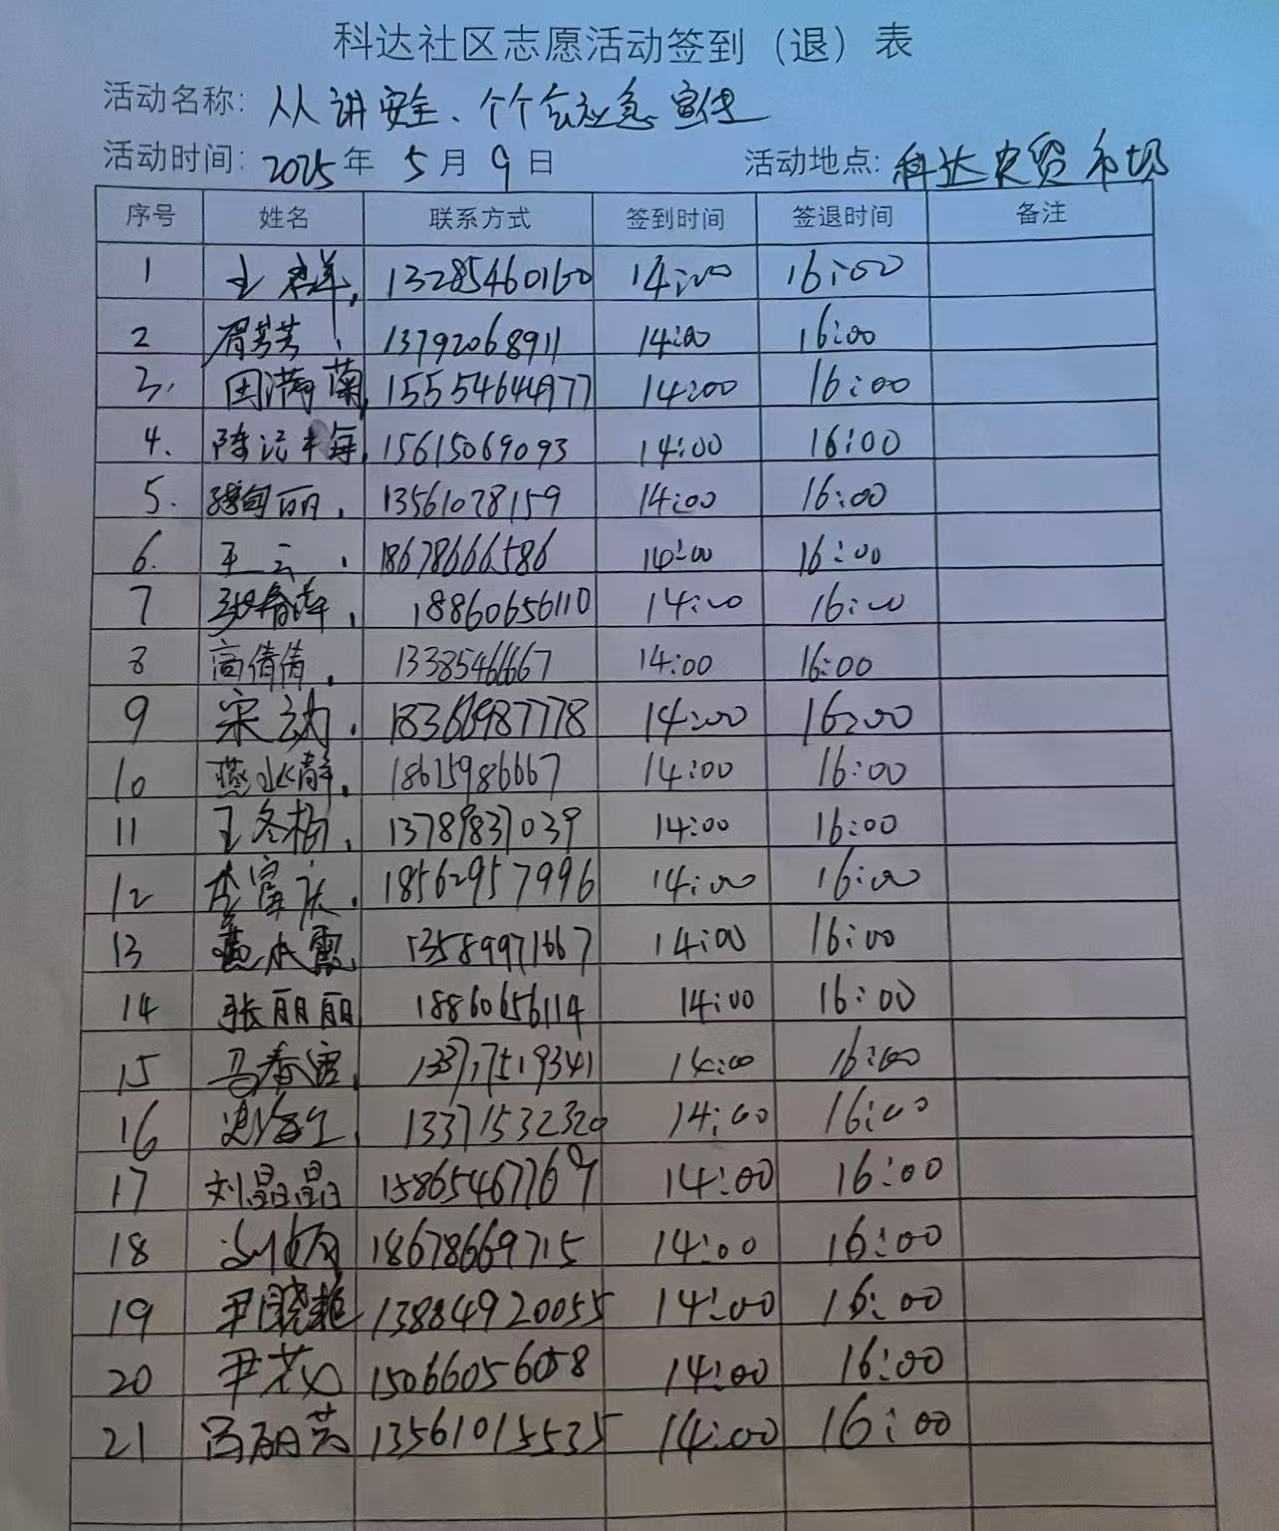 科达社区志愿活动签到（退）表
活动名称: 人人讲安全、个个会应急宣传
活动时间: 2025年 5月 9日 活动地点: 科达农贸市场
序号 姓名 联系方式 签到时间 签退时间 备注
1 13285460160 14:00 16:00
2 周芳芳 13792068911 14:00 16:00
3. 田满菊 15554644977 14:00 16:00
4. 15615069093 14:00 16:00
5. 13561078159 14:00 16:00
6. 王云 18678666586 14:00 16:00
7 18860656110 14:00 16:00
8 高倩倩 13385466667 14:00 16:00
9 宋动 18366987778 14:00 16:00
10 燕冰静 18615986667 14:00 16:00
11 王冬梅 13789837039 14:00 16:00
12 李富庆 18562957996 14:00 16:00
13 13589971667 14:00 16:00
14 张丽丽 18860656114 14:00 16:00
15 马春雷 13371519341 14:00 16:00
16 13371532320 14:00 16:00
17 刘晶晶 15865467769 14:00 16:00
18 18678669715 14:00 16:00
19 尹晓艳 13884920055 14:00 16:00
20 15066056058 14:00 16:00
21 冯丽芸 13561015535 14:00 16:00